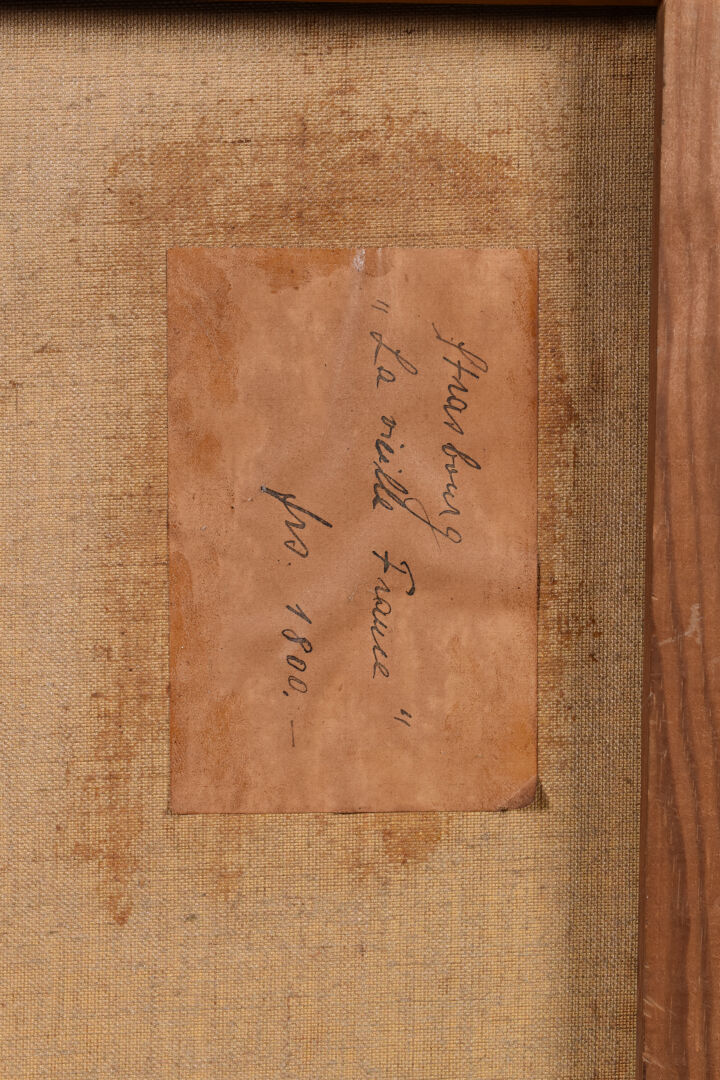 Strasbourg
"La vieille France"
frs. 1800.—